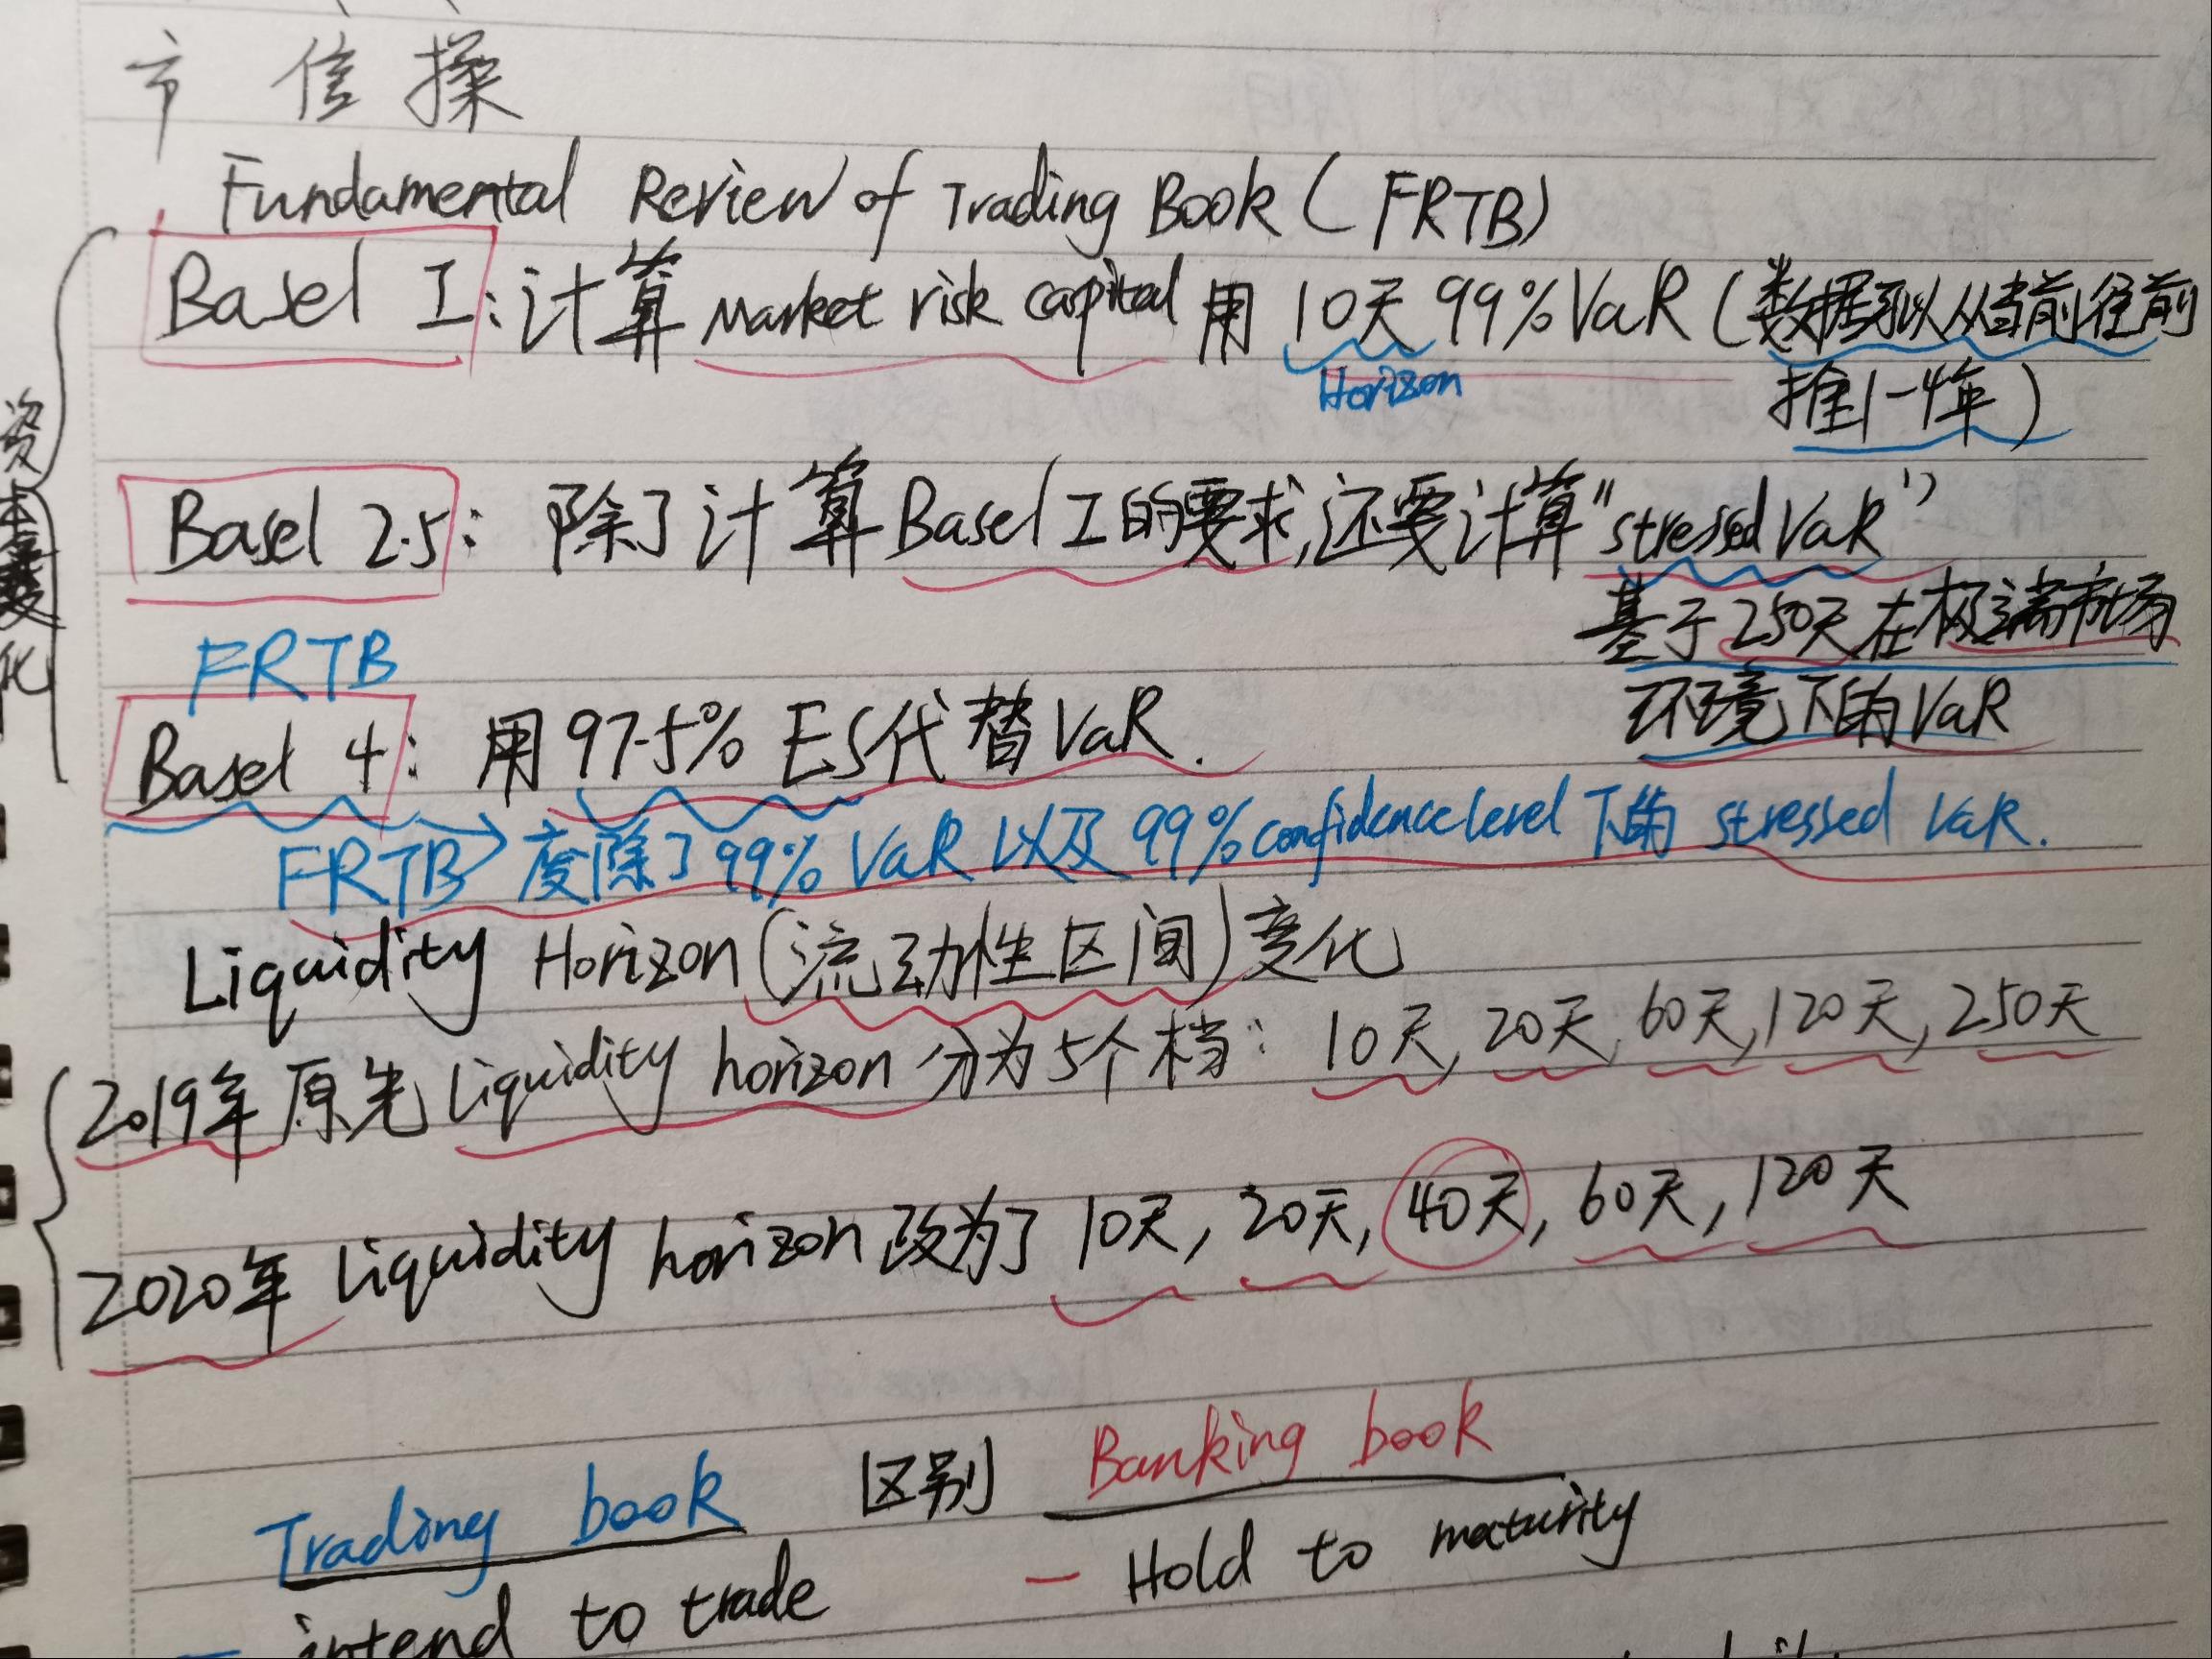 市 信 操
Fundamental Review of Trading Book (FRTB)
Basel I: 计算 Market risk capital 用 10天 99% VaR (数据可以从当前往前
Horizon
推1-4年)
资本要求变化
Basel 2.5: 除了计算Basel I的要求,还要计算"stressed VaR"
基于250天在极端市场
环境下的VaR
FRTB
Basel 4: 用97.5% ES代替VaR.
FRTB 废除了99% VaR 以及 99% confidence level 下的 stressed VaR.
Liquidity Horizon (流动性区间) 变化
2019年原先 liquidity horizon 分为5个档: 10天, 20天, 60天, 120天, 250天
2020年 liquidity horizon 改为了 10天, 20天, 40天, 60天, 120天
Trading book 区别 Banking book
- intend to trade - Hold to maturity